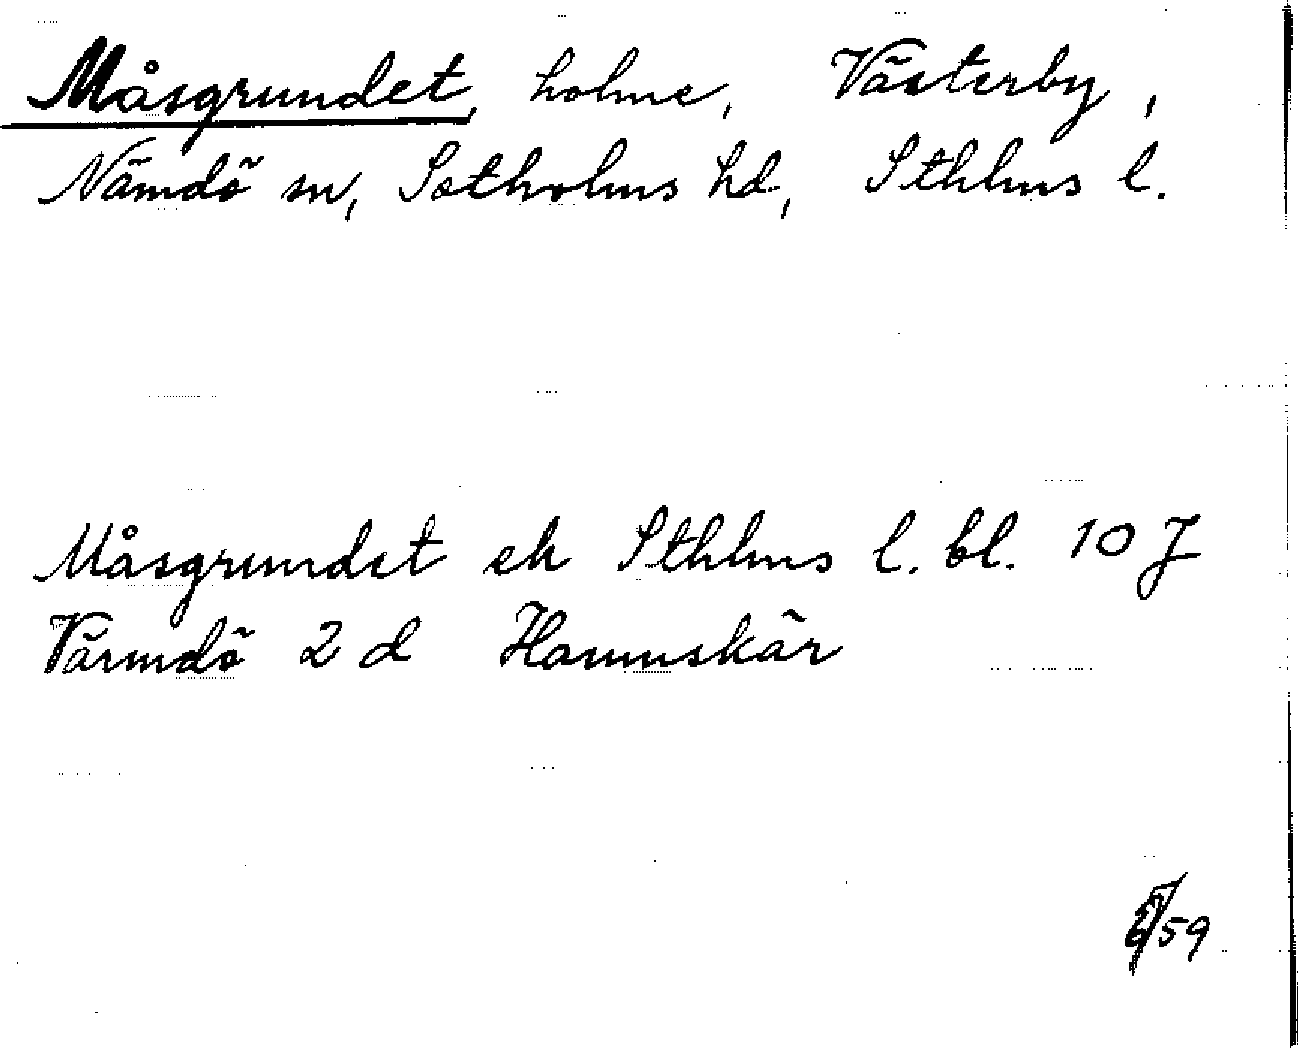 Måsgrundet, holme, Västerby,
Nämdö sn, Sotholms hd, Sthlms l.
Måsgrundet ek Sthlms l. bl. 10 J
Värmdö 2 d Hamnskär
59